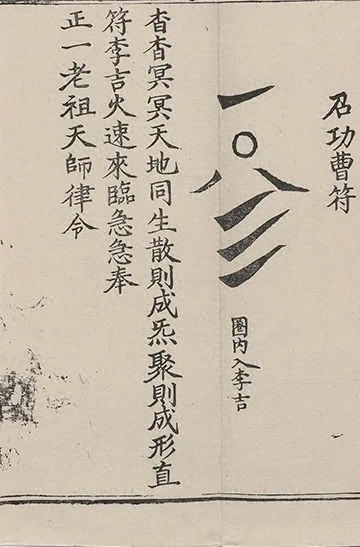 召功曹符
圈内入李吉
杳杳冥冥天地同生散則成炁聚則成形直
符李吉火速來臨急急奉
正一老祖天師律令